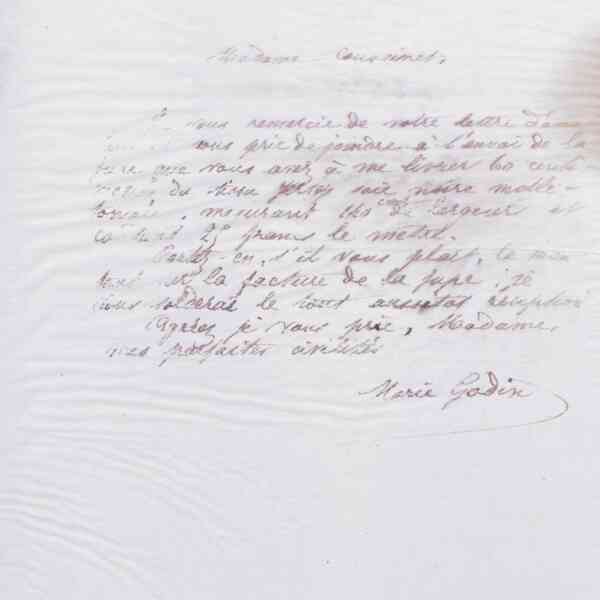 Madame Coussinet,
vous remercie de votre lettre
vous prie de joindre à l'envoi de la
jupe que vous avez à me livrer 60 centi
du tissu jersey soie noire
mesurant 140 c de largeur et
25 francs le mètre.
Portez-en, s'il vous plait, le mon
tant sur la facture de la jupe ; je
vous solderai le tout aussitôt réception
Agréez, je vous prie, Madame,
mes parfaites civilités
Marie Godin